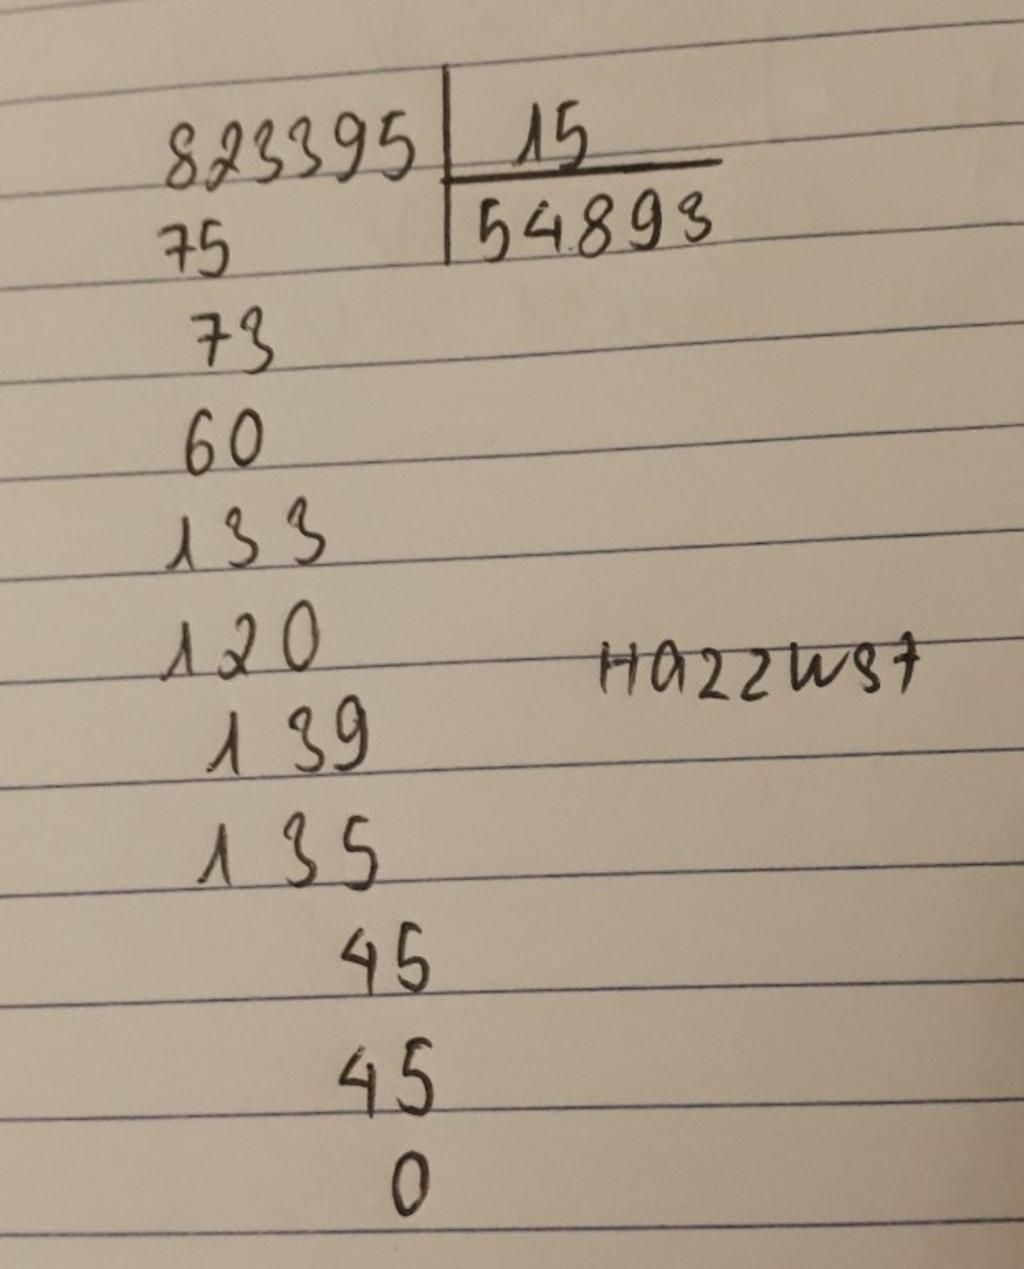 823395 15
75 54893
73
60
133
120
Hazzwst
139
135
45
45
0